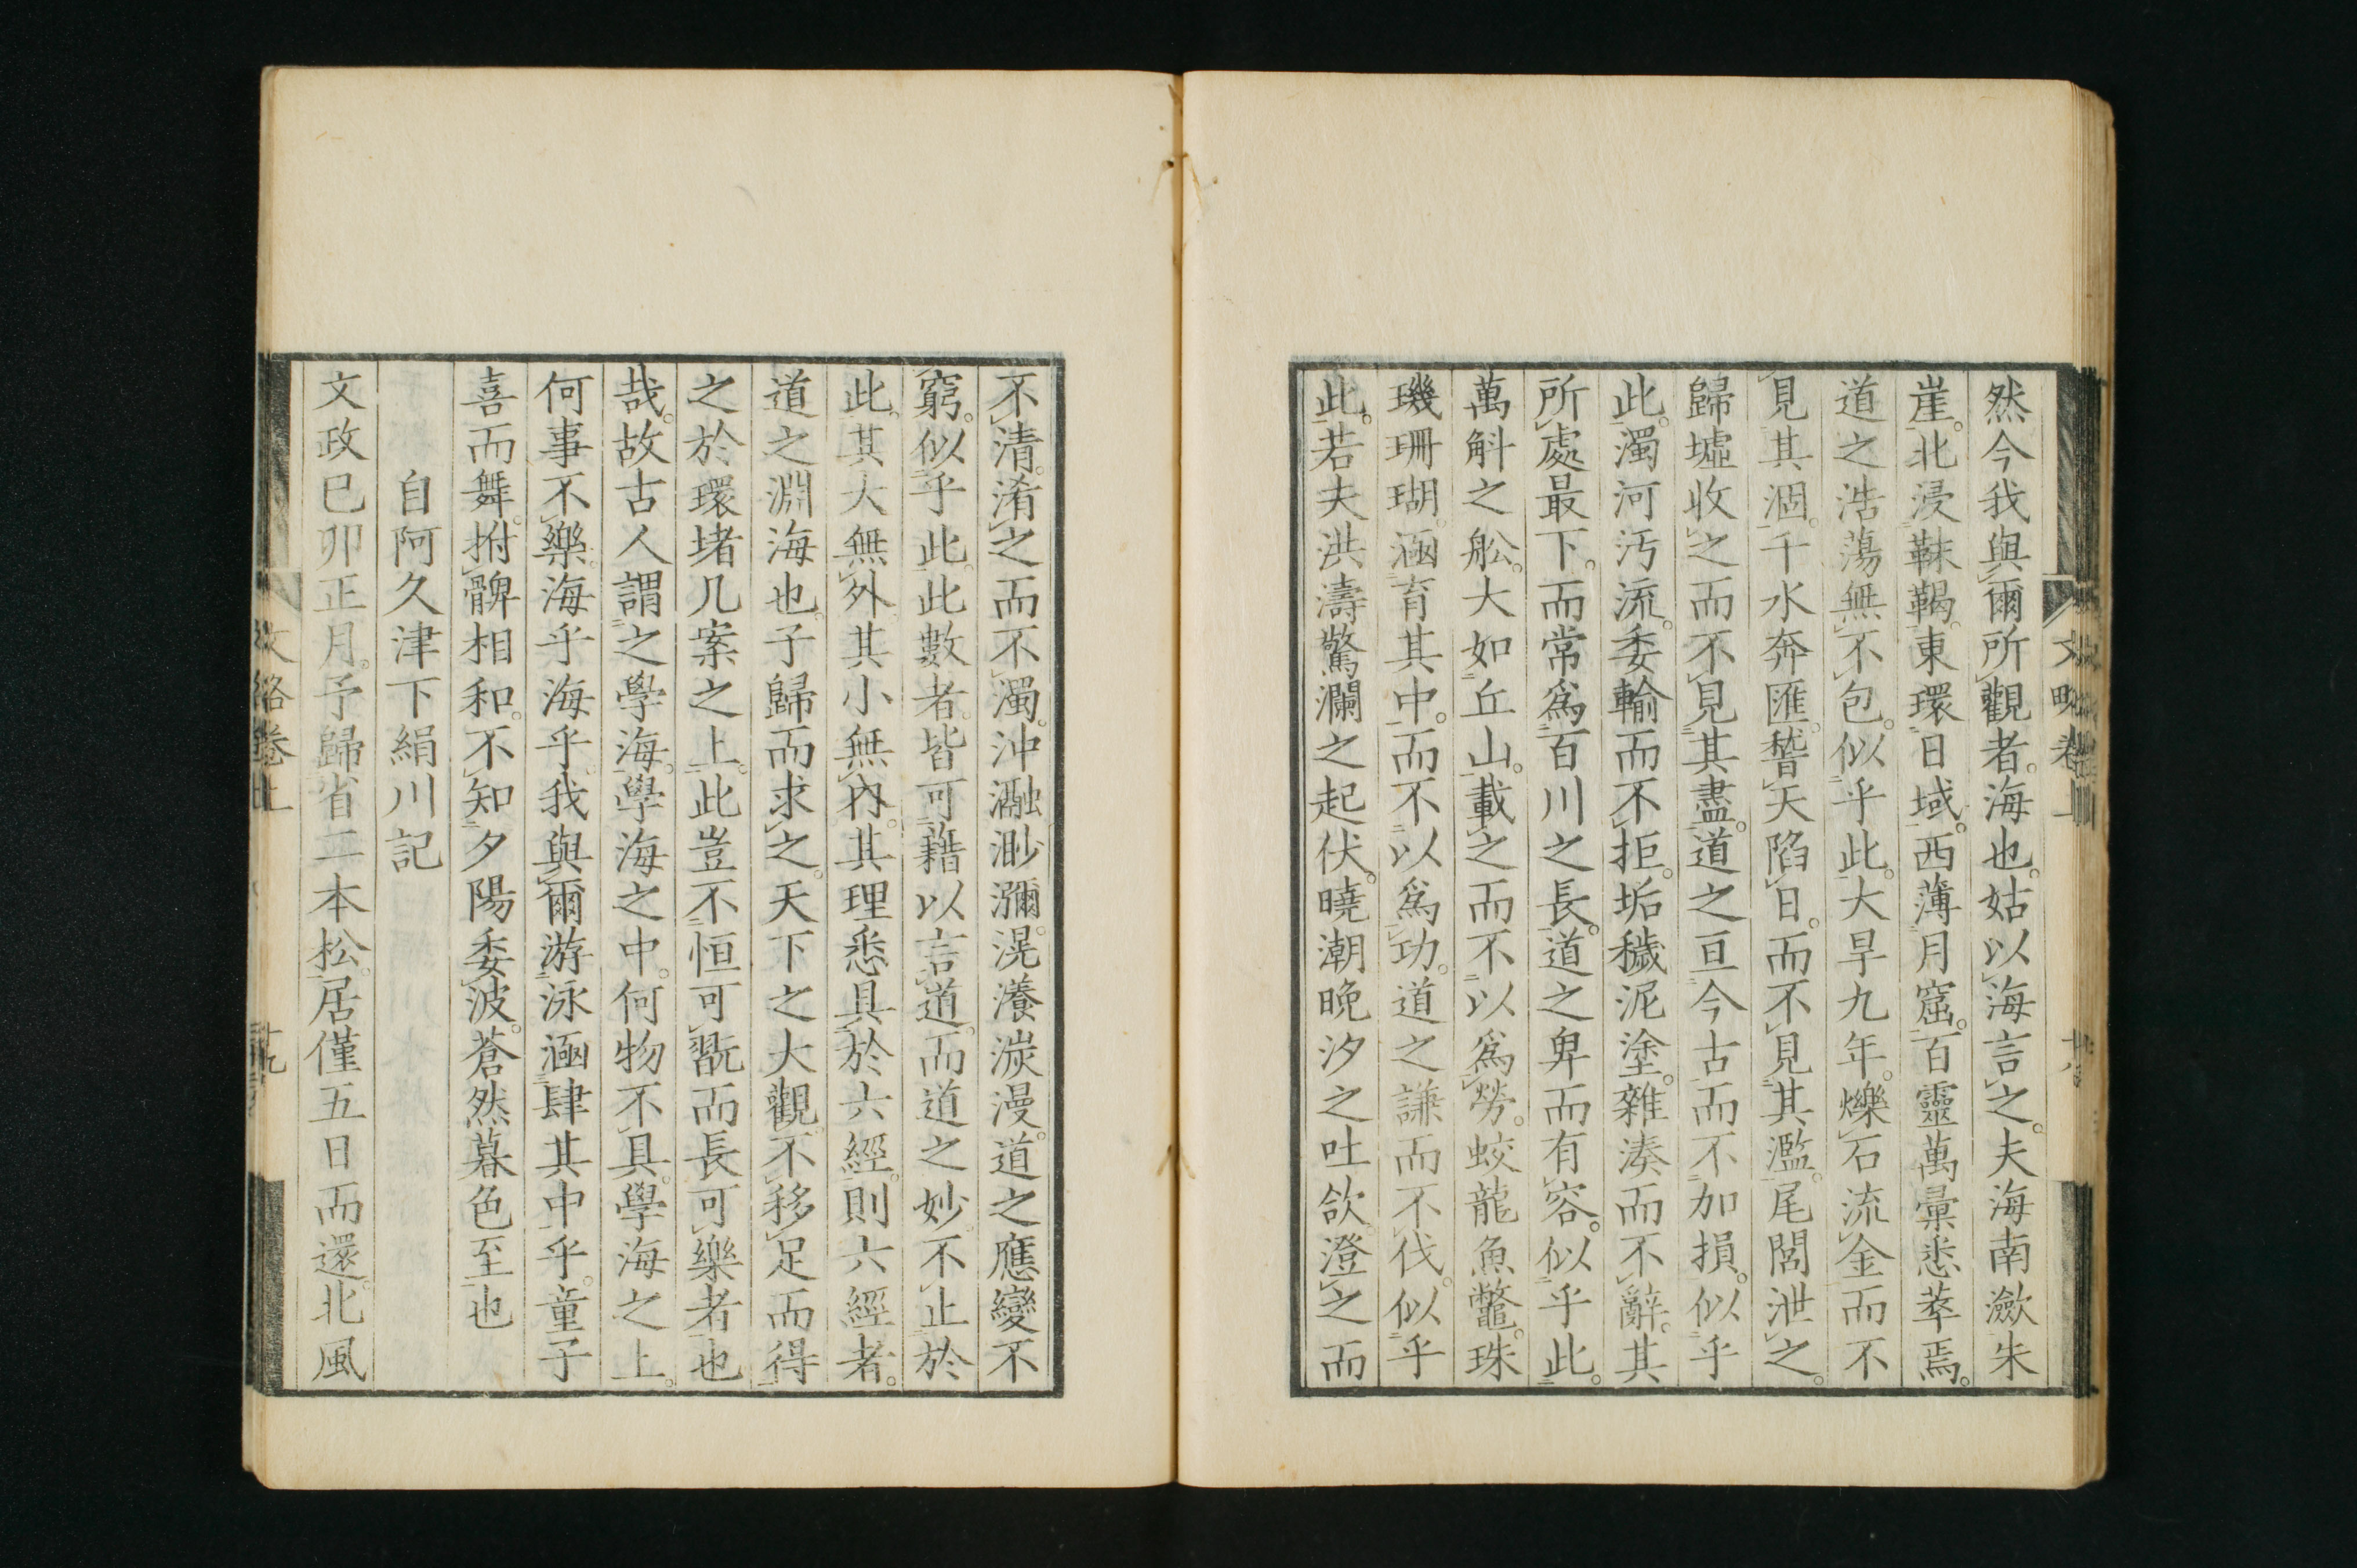 然今我與爾所觀者。海也。姑以海言之。夫海南瀲朱
崖。北浸靺鞨。東環日域。西薄月窟。百靈萬彙悉萃焉。
道之浩蕩無不包。似乎此。大旱九年。爍石流金而不
見其涸。千水奔匯。瞀天陷日。而不見其濫。尾閭泄之。
歸墟收之而不見其盡。道之亘今古而不加損。似乎
此。濁河汚流。委輸而不拒。垢穢泥塗。雜湊而不辭。其
所處最下。而常爲百川之長。道之卑而有容。似乎此。
萬斛之舩。大如丘山。載之而不以爲勞。蛟龍魚鼈。珠
璣珊瑚。涵育其中。而不以爲功。道之謙而不伐。似乎
此。若夫洪濤驚瀾之起伏。曉潮晩汐之吐欱。澄之而
文略卷上
十八
不清。淆之而不濁。沖瀜渺瀰。滉瀁漫。道之應變不
窮。似乎此。此數者。皆可藉以言道。而道之妙。不止於
此。其大無外。其小無內。其理悉具於六經。則六經者。
道之淵海也。子歸而求之。天下之大觀。不移足而得
之於環堵几案之上。此豈不恒可翫而長可樂者也
哉。故古人謂之學海。學海之中。何物不具。學海之上。
何事不樂。海乎海乎。我與爾游泳涵肆其中乎。童子
喜而舞。拊髀相和。不知夕陽委波。蒼然暮色至也
自阿久津下絹川記
文政巳卯正月。予歸省二本松。居僅五日而還。北風
文略卷上
十九